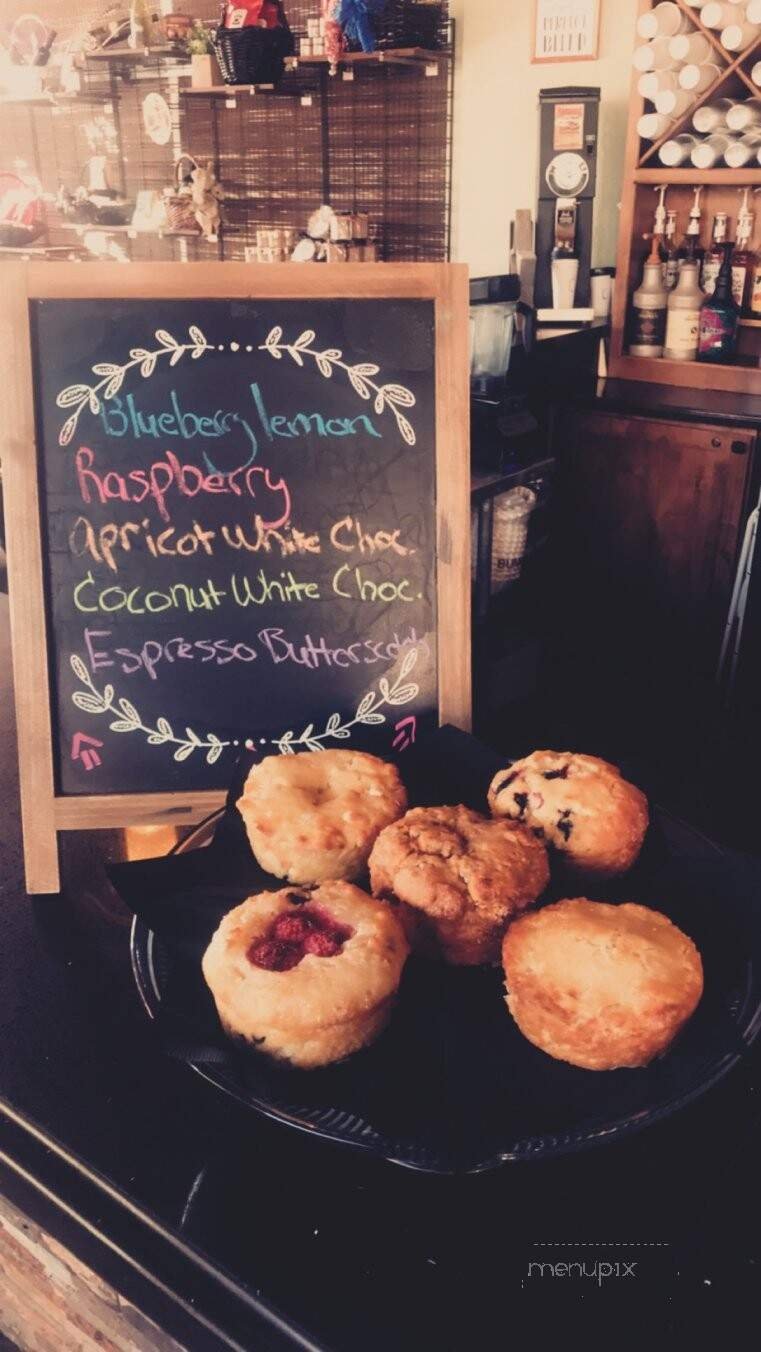 PERFECT
BLEND
Blueberry lemon
Raspberry
Apricot White Choc.
Coconut White Choc.
Espresso Butterscotch
BUN
menupix